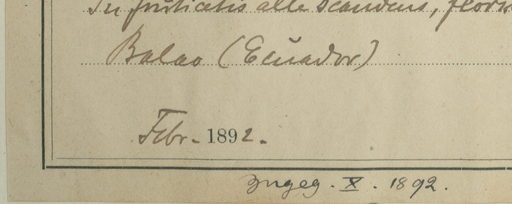 In fruticetis alte scandens, flor
Balao (Ecuador)
Febr. 1892.
Zugeg. X. 1892.